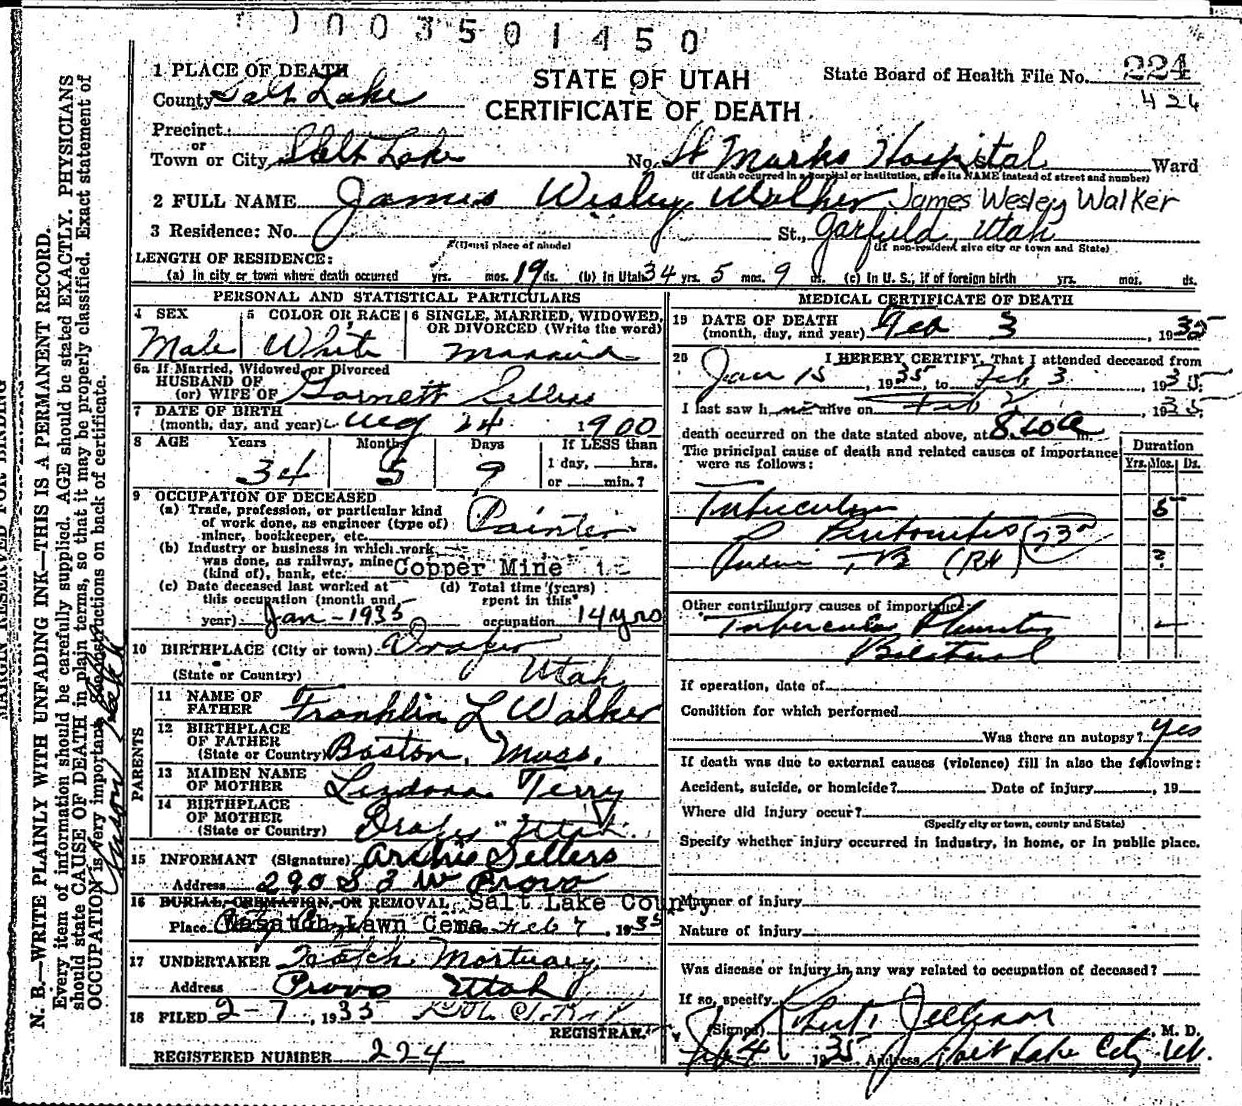 0003501450
STATE OF UTAH
CERTIFICATE OF DEATH
State Board of Health File No. 224
424
1 PLACE OF DEATH
County Salt Lake
Precinct
or
Town or City Salt Lake No. St Marks Hospital Ward
(If death occurred in a hospital or institution, give its NAME instead of street and number)
2 FULL NAME James Wesley Walker James Wesley Walker
3 Residence: No. St., Garfield Utah
(Usual place of abode) (If non-resident give city or town and State)
LENGTH OF RESIDENCE:
(a) In city or town where death occurred yrs. mos. 19 ds. (b) In Utah 34 yrs. 5 mos. 9 ds. (c) In U. S., if of foreign birth yrs. mos. ds.
PERSONAL AND STATISTICAL PARTICULARS
4 SEX 5 COLOR OR RACE 6 SINGLE, MARRIED, WIDOWED,
OR DIVORCED (Write the word)
Male White Married
6a If Married, Widowed, or Divorced
HUSBAND OF
(or) WIFE OF Garnett Sellers
7 DATE OF BIRTH
(month, day, and year) Aug 24 1900
8 AGE Years Months Days If LESS than
34 5 9 1 day, hrs.
or min.?
9 OCCUPATION OF DECEASED
(a) Trade, profession, or particular kind
of work done, as engineer (type of)
miner, bookkeeper, etc. Painter
(b) Industry or business in which work
was done, as railway, mine
(kind of), bank, etc. Copper Mine
(c) Date deceased last worked at (d) Total time (years)
this occupation (month and spent in this
year) Jan-1935 occupation 14 yrs
10 BIRTHPLACE (City or town) Draper
(State or Country) Utah
PARENTS
11 NAME OF
FATHER Franklin L Walker
12 BIRTHPLACE
OF FATHER
(State or Country) Boston, Mass.
13 MAIDEN NAME
OF MOTHER Terry
14 BIRTHPLACE
OF MOTHER
(State or Country) Draper Utah
15 INFORMANT (Signature) Archie Sellers
Address 290 S 3 W Provo
16 BURIAL, CREMATION, OR REMOVAL Salt Lake County
Place Wasatch Lawn Cem. Feb 7, 1935
17 UNDERTAKER Hatch Mortuary
Address Provo Utah
18 FILED 2-7, 1935
REGISTRAR
REGISTERED NUMBER 224
MEDICAL CERTIFICATE OF DEATH
19 DATE OF DEATH
(month, day, and year) Feb 3, 1935
20 I HEREBY CERTIFY, That I attended deceased from
Jan 15, 1935, to Feb 3, 1935
I last saw him alive on Feb 2, 1935
death occurred on the date stated above, at m.
The principal cause of death and related causes of importance
were as follows:
Duration
Yrs. Mos. Ds.
Tuberculous 5
Peritonitis
TB (Rt) ?
Other contributory causes of importance:
Tubercular Pleurisy
Bilateral
If operation, date of
Condition for which performed
Was there an autopsy? Yes
If death was due to external causes (violence) fill in also the following:
Accident, suicide, or homicide? Date of injury , 19
Where did injury occur?
(Specify city or town, county and State)
Specify whether injury occurred in industry, in home, or in public place.
Manner of injury
Nature of injury
Was disease or injury in any way related to occupation of deceased?
If so, specify
(Signed) Robert , M. D.
Feb 4 1935 Address Salt Lake City Ut.
MARGIN RESERVED FOR BINDING
N. B.—WRITE PLAINLY WITH UNFADING INK—THIS IS A PERMANENT RECORD.
Every item of information should be carefully supplied. AGE should be stated EXACTLY. PHYSICIANS
should state CAUSE OF DEATH in plain terms, so that it may be properly classified. Exact statement of
OCCUPATION is very important. See instructions on back of certificate.